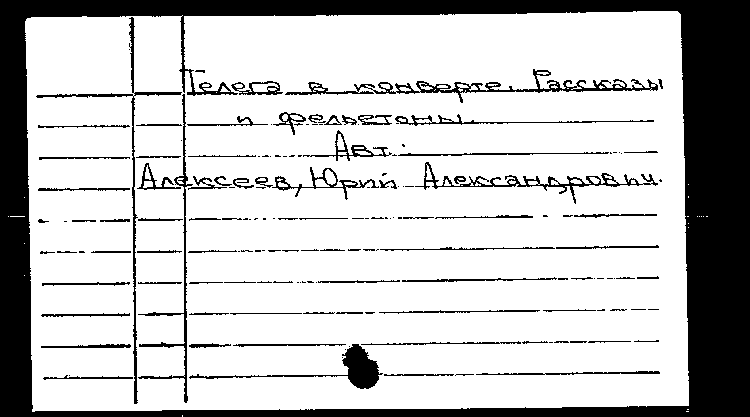 Телега в конверте. Рассказы
и фельетоны.
Авт.:
Алексеев, Юрий Александрович.